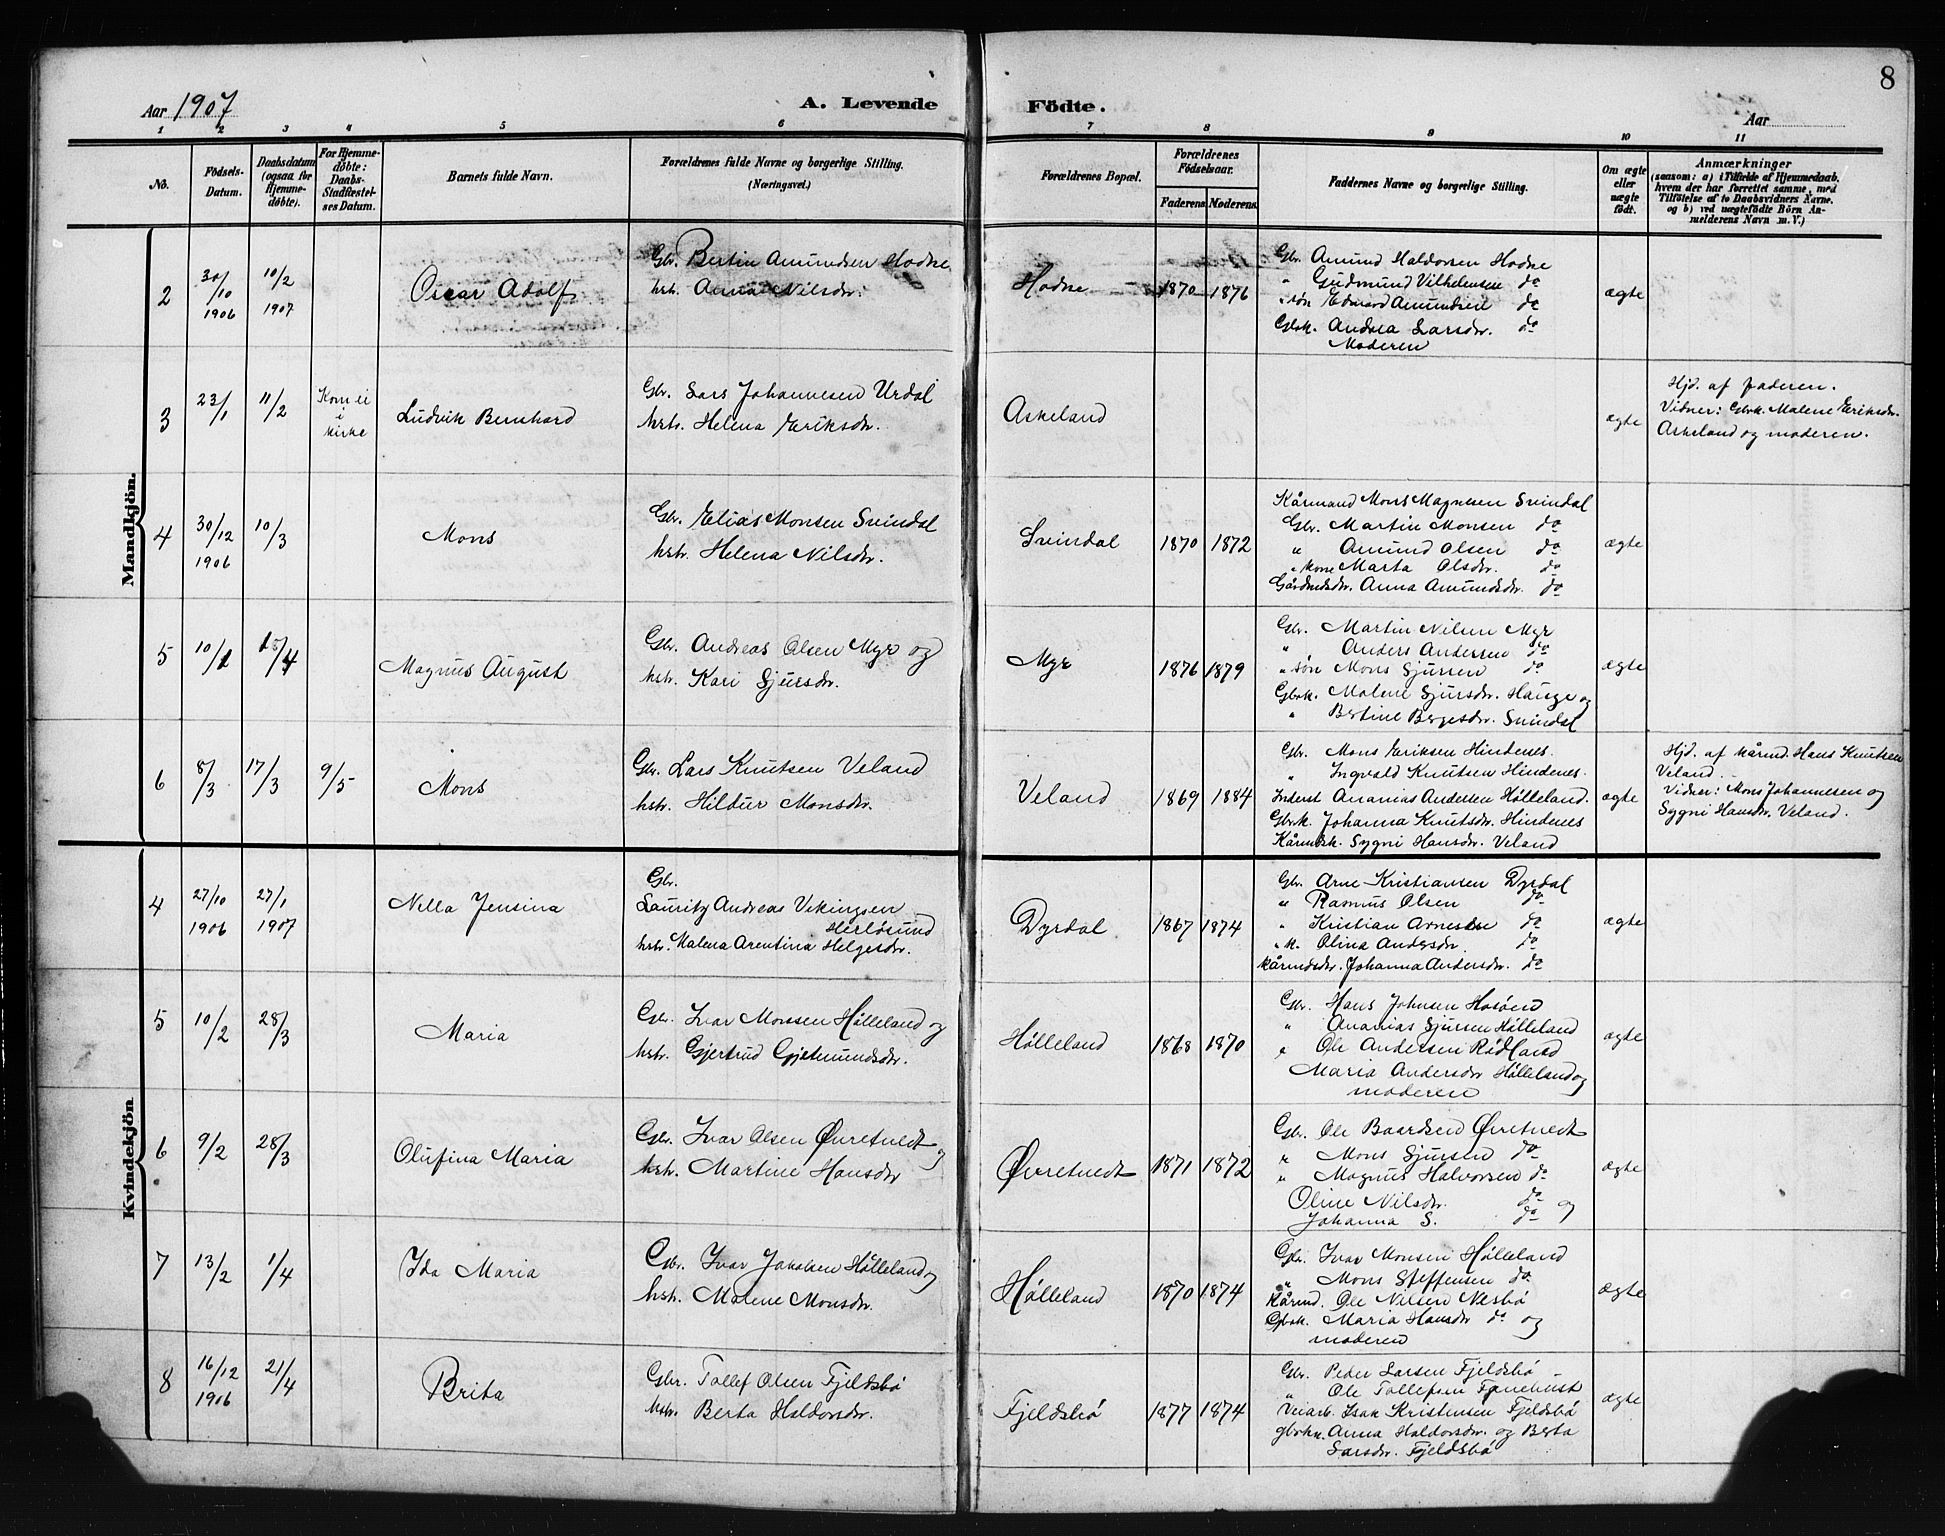 8
Aar 1907
A. Levende Födte.
Aar
1 2 3 4 5 6 7 8 9 10 11
No.
Födsels-Datum.
Daabsdatum (ogsaa for Hjemme-döbte).
For Hjemme-döbte: Daabs-Stadfæstel-ses Datum.
Barnets fulde Navn.
Forældrenes fulde Navne og borgerlige Stilling.
(Næringsvei.)
Forældrenes Bopæl.
Forældrenes Födselsaar.
Faderens. Moderens.
Faddernes Navne og borgerlige Stilling.
Om ægte eller uægte födt.
Anmærkninger
(saasom: a) i Tilfælde af Hjemmedaab,
hvem der har forrettet samme, med
Tilföielse af to Daabsvidners Navne,
og b) ved uægtefödte Börn An-
melderens Navn m. V.)
Mandkjön.
2
30/10 1906
10/2 1907
Oscar Adolf
Gbr. Bertin Amundsen Hodne
hstr. Anna Nilsdr.
Hodne
1870 1876
Gbr. Amund Haldorsen Hodne
" Gudmund Vilhelmsen do
" søn Edvard Amundsen do
Gbrk. Andrea Larsdr. do
Moderen
ægte
3
23/1
11/2
Kom ei
i
kirke
Ludvik Bernhard
Gbr. Lars Johannesen Urdal
hstr. Helena Eriksdr.
Askeland
ægte
Hjd. af faderen.
Vidner: Gbrk. Malene Eriksdr.
Askeland og moderen.
4
30/12 1906
10/3
Mons
Gbr. Elias Monsen Svindal
hstr. Helena Nilsdr.
Svindal
1870 1872
Kårmand Mons Magnesen Svindal
Gbr. Martin Monsen do
" Amund Olsen do
" kone Marta Olsdr. do
Gårdmdsdr. Anna Amundsdr. do
ægte
5
10/1
15/4
Magnus August
Gbr. Andreas Olsen Myr og
hstr. Kari Sjursdr.
Myr
1876 1879
Gbr. Martin Nilsen Myr
" Anders Andersen do
" søn Mons Sjursen do
Gbrk. Malene Sjursdr. Hauge og
" Bertine Bergesdr. Svindal
ægte
6
8/3
17/3
9/5
Mons
Gbr. Lars Knutsen Veland
hstr. Hildur Monsdr.
Veland
1869 1884
Gbr. Mons Eriksen Hindenes.
" Ingvald Knutsen Hindenes.
Inderst Ananias Andersen Hølleland.
Gbrk. Johanna Knutsdr. Hindenes
Kårmdsk. Sygni Hansdr. Veland
ægte
Hjd. af kårmd. Hans Knutsen
Veland.
Vidner: Mons Johannesen og
Sygni Hansdr. Veland.
Kvindekjön
4
27/10 1906
27/1 1907
Nella Jensina
Gbr.
Lauritz Andreas Vekingsen
Herløsund
hstr. Malena Arentina Helgesdr.
Dyrdal
1867 1874
Gbr. Arne Kristiansen Dyrdal
" Rasmus Olsen do
" Kristian Arnesen do
" k. Olina Andersdr. do
kårmdsdr. Johanna Andersdr. do
ægte
5
10/2
28/3
Maria
Gbr. Ivar Monsen Hølleland og
hstr. Gjertrud Gjetmundsdr.
Hølleland
1868 1870
Gbr. Hans Johnsen Hosøen
" Ananias Sjursen Hølleland
" Ole Andersen Rødland
Maria Andersdr Hølleland og
moderen
ægte
6
9/2
28/3
Olufina Maria
Gbr. Ivar Olsen Øvretvedt og
hstr. Martine Hansdr
Øvretvedt
1871 1872
Gbr. Ole Baardsen Øvretvedt
" Mons Sjursen do
" Magnus Halvorsen do
Oline Nilsdr. do og
Johanna S. do
ægte
7
13/2
1/4
Ida Maria
Gbr. Ivar Jakobsen Hølleland og
hstr. Malene Monsdr.
Hølleland
1870 1874
Gbr. Ivar Monsen Hølleland
" Mons Steffensen do
Kårmd. Ole Nilsen Nesbø
Gbrk. Maria Hansdr do og
moderen
ægte
8
16/12 1906
21/4
Brita
Gbr. Tollef Olsen Fjeldsbø
hstr. Berta Haldorsdr.
Fjeldsbø
1877 1874
Gbr. Peder Larsen Fjeldsbø
" Ole Tollefsen
Veiarb. Isak Kristensen Fjeldsbø
gbrkn. Anna Haldorsdr. og Berta
Larsdr. Fjeldsbø
ægte